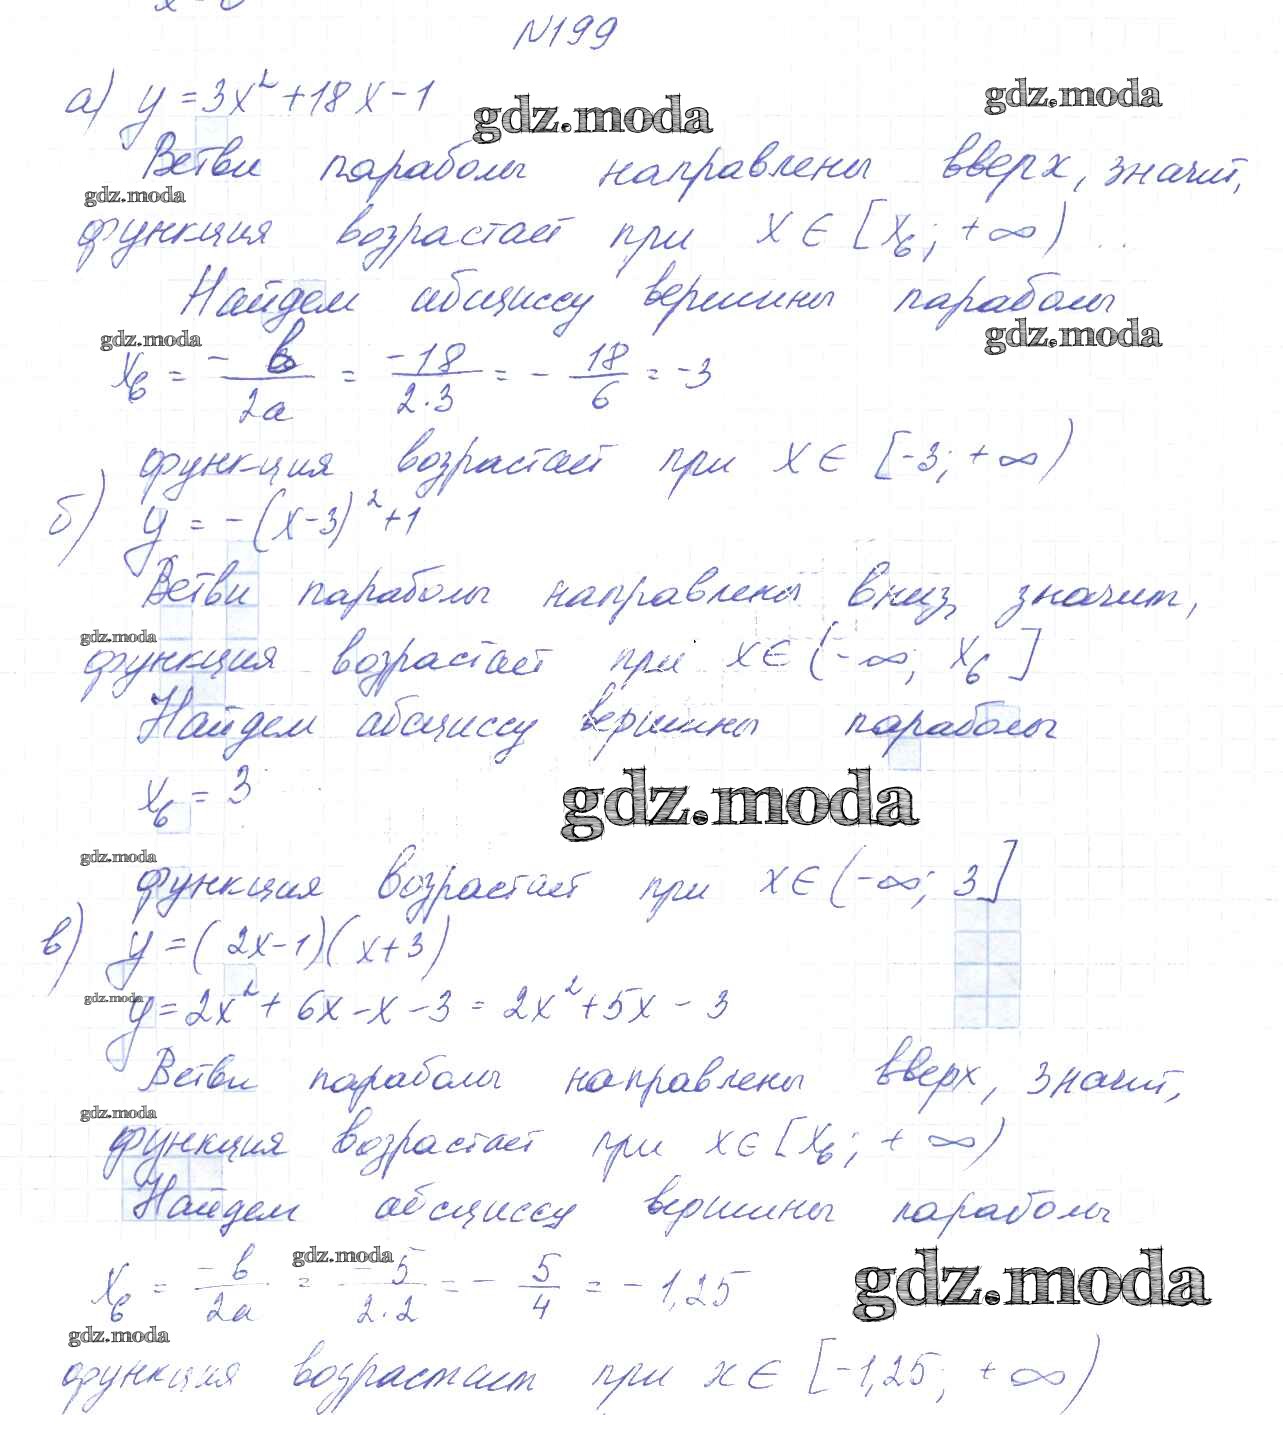 N199
а) y = 3x² + 18x - 1
gdz.moda
gdz.moda
Ветви параболы направлены вверх, значит,
gdz.moda
функция возрастает при x ∈ [xв; +∞)
Найдем абсциссу вершины параболы
gdz.moda
gdz.moda
xв = -b/2a = -18/2·3 = -18/6 = -3
функция возрастает при x ∈ [-3; +∞)
б) y = -(x-3)² + 1
Ветви параболы направлены вниз, значит,
gdz.moda
функция возрастает при x ∈ (-∞; xв]
Найдем абсциссу вершины параболы
xв = 3
gdz.moda
gdz.moda
функция возрастает при x ∈ (-∞; 3]
в) y = (2x-1)(x+3)
gdz.moda
y = 2x² + 6x - x - 3 = 2x² + 5x - 3
Ветви параболы направлены вверх, значит,
gdz.moda
функция возрастает при x ∈ [xв; +∞)
Найдем абсциссу вершины параболы
gdz.moda
xв = -b/2a = -5/2·2 = -5/4 = -1,25
gdz.moda
gdz.moda
функция возрастает при x ∈ [-1,25; +∞)